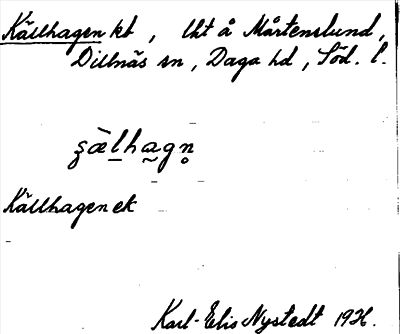 Källhagen kt, lht å Mårtenslund,
Dillnäs sn, Daga hd, Söd. l.
ʂæ̀lhagn̥
Källhagen ek
Karl-Elis Nystedt 1926.